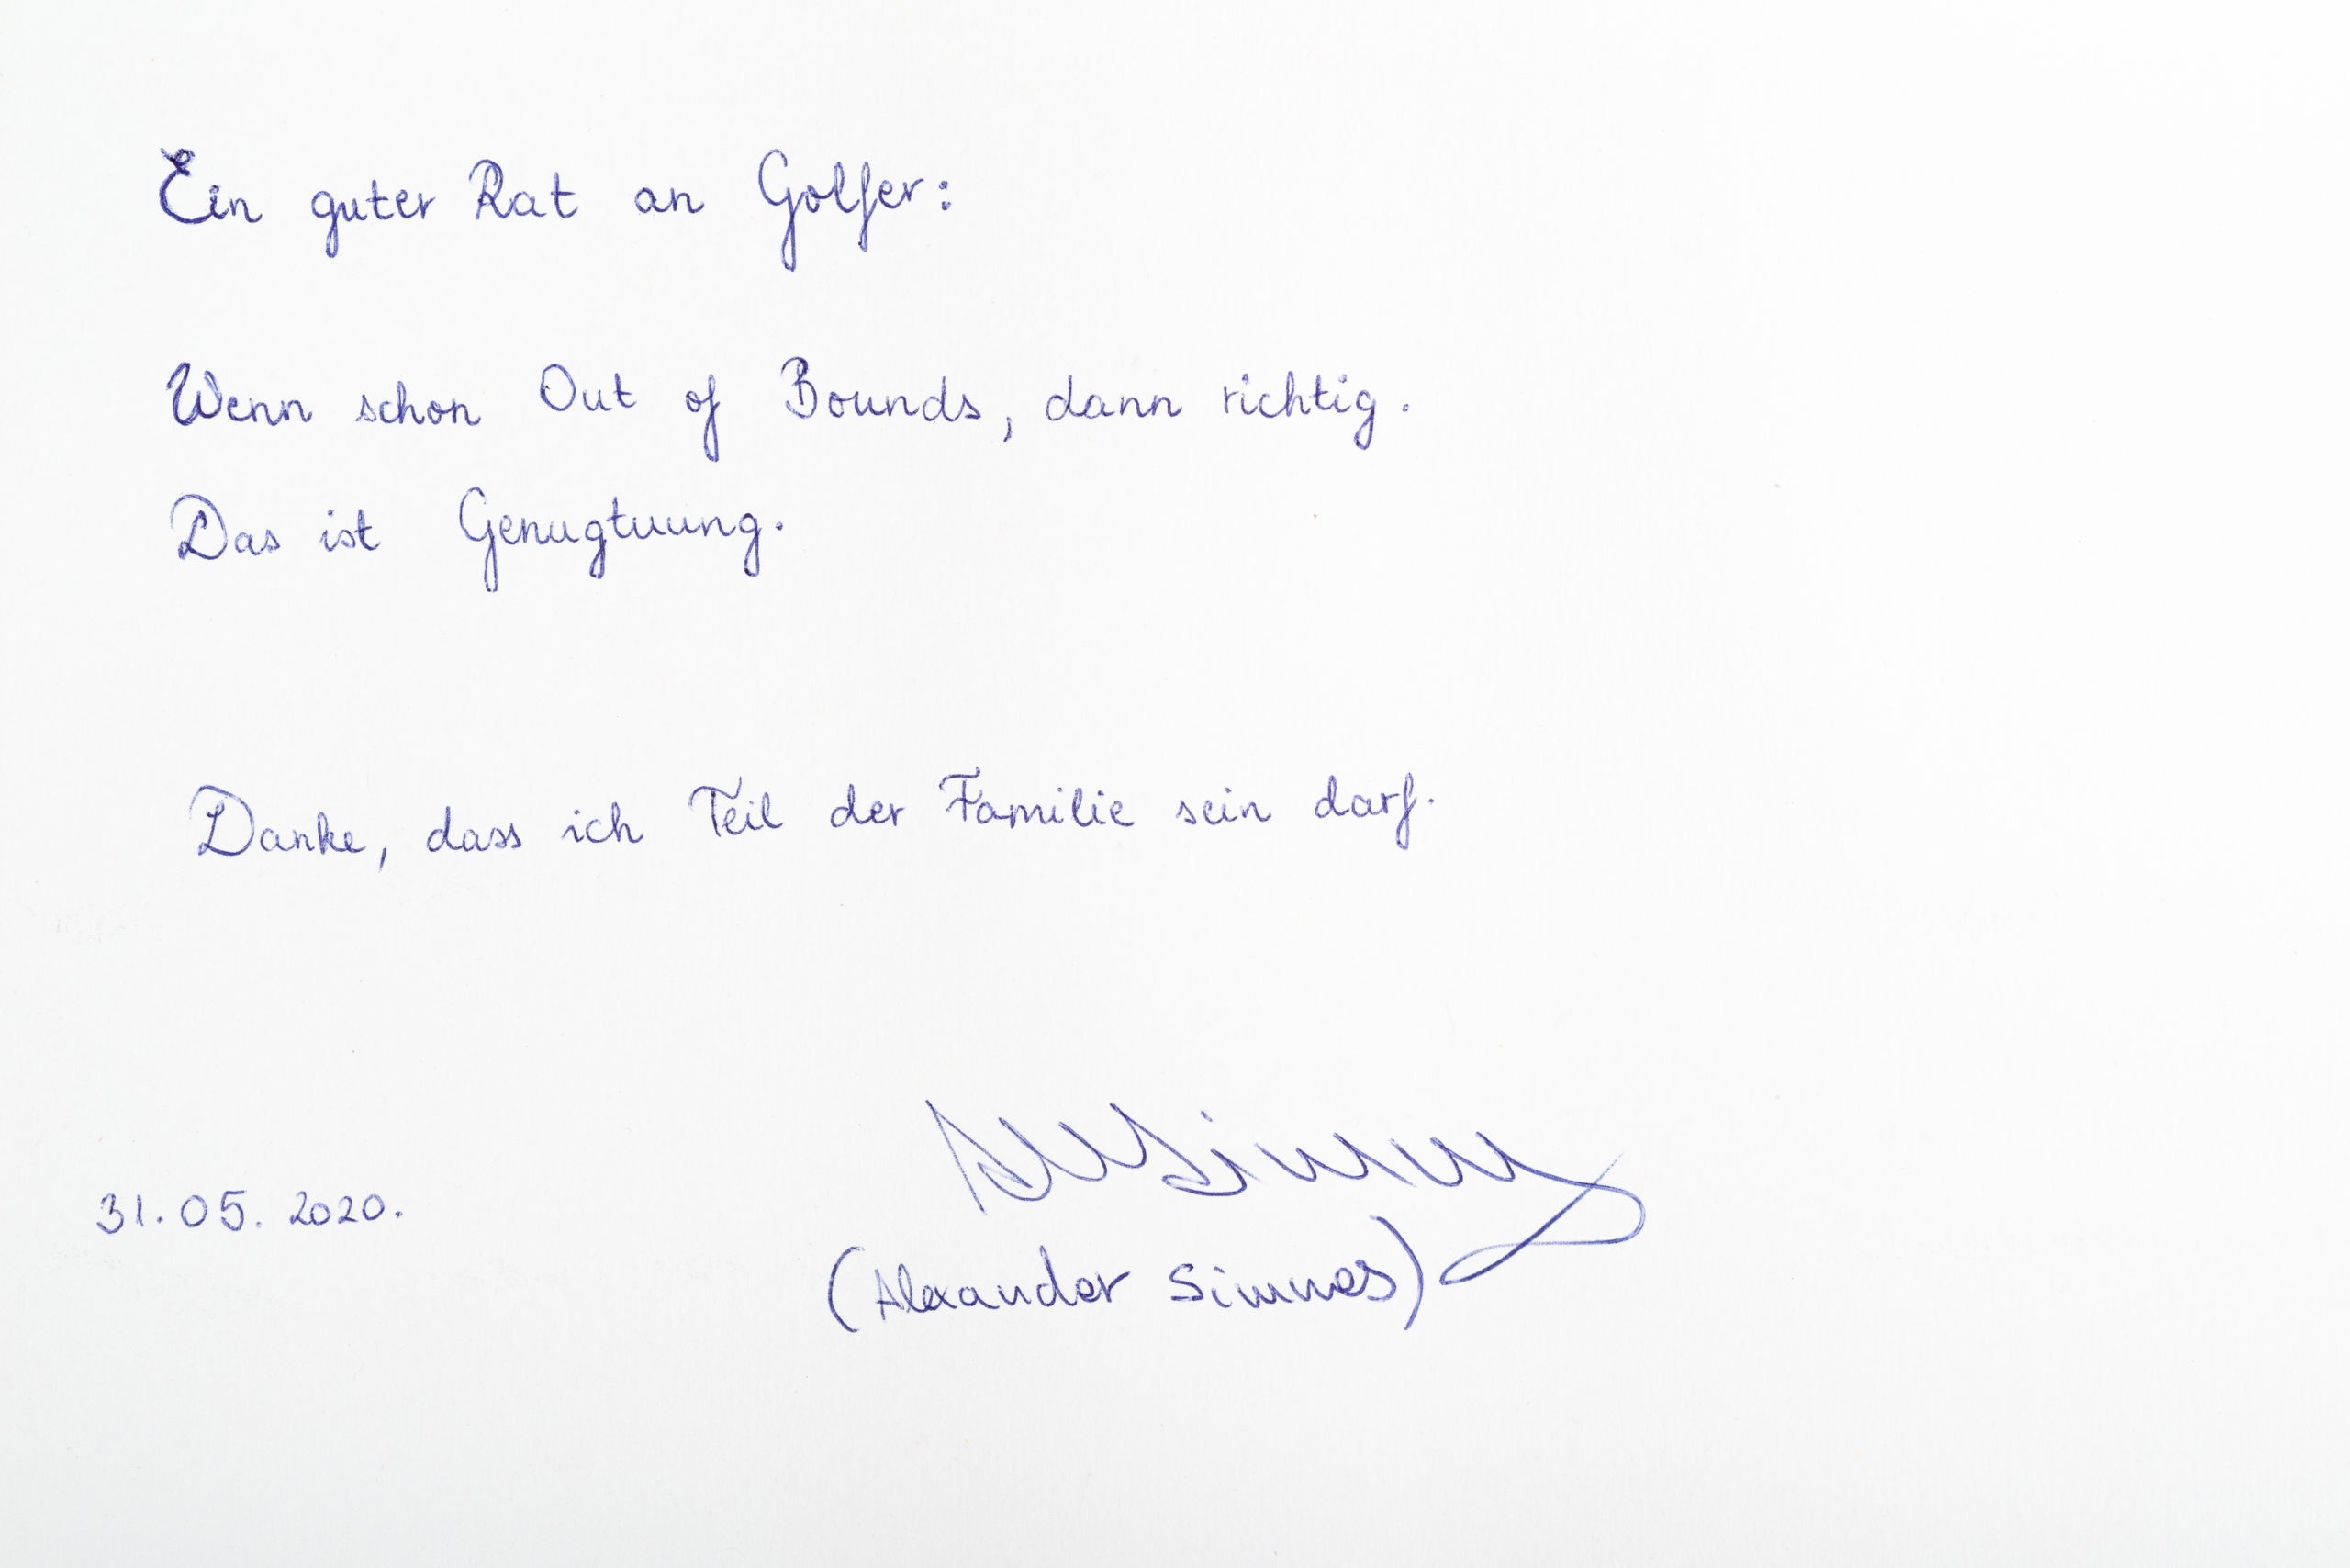 Ein guter Rat an Golfer:
Wenn schon Out of Bounds, dann richtig.
Das ist Genugtuung.
Danke, dass ich Teil der Familie sein darf.
31.05.2020.
(Alexander Simmes)